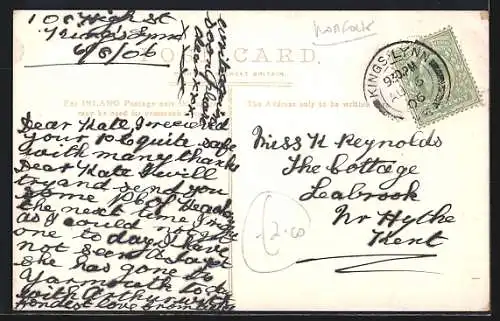 108 High St
King's Lynn
6/8/06
POST CARD.
GREAT BRITAIN.
For INLAND Postage only this
may be used for
The Address only to be written
NORFOLK
KINGS LYNN
9.30PM
AU
06
Dear Kate I received
your P.C quite safe
with many thanks
Dear Kate I will
try and send you
some P C of
the next time I write
as I could not get
one to day I have
not seen
she has gone to
Yarmouth to day
with Arthur with
fondest love from
Miss K Reynolds
The Cottage
Seabrook
Nr Hythe
Kent
2.00